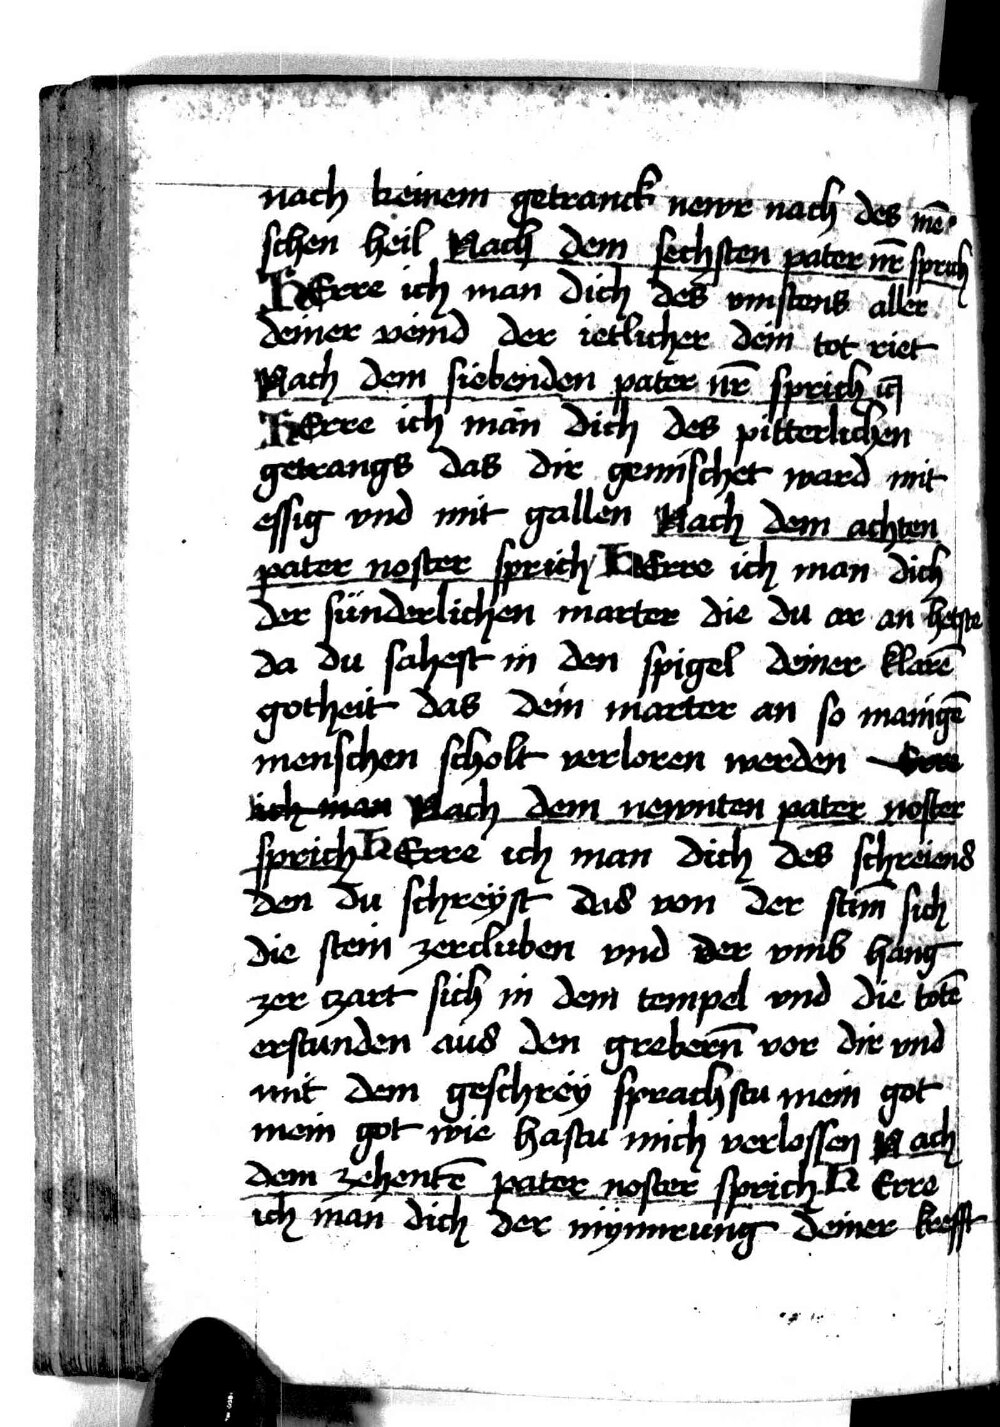 nach keinem getranck newr nach des mē
schen heil Nach dem sechsten pater nr̄ sprich
HErre ich man dich des vmstens aller
deiner veind der ietlicher dein tot riet
Nach dem siebenden pater nr̄ sprich
HErre ich man dich des pitterlichen
getrangs das dir gemischet ward mit
essig vnd mit gallen Nach dem achten
pater noster sprich HErre ich man dich
der sünderlichen marter die du ar an hetste
da du sahest in den spigel deiner klarē
gotheit das dein marter an so manigē
menschen scholt verloren werden Erre
ich man Nach dem newnten pater noster
sprich HErre ich man dich des schreiens
den du schreÿst das von der stim̄ sich
die stein zercluben vnd der vmb hang
zer czart sich in dem tempel vnd die totē
erstunden aus den grebern̄ vor dir vnd
mit dem geschreÿ sprachstu mein got
mein got wie hastu mich verlossen Nach
dem zehentē pater noster sprich H Erre
ich man dich der mÿnnrung deiner krefft